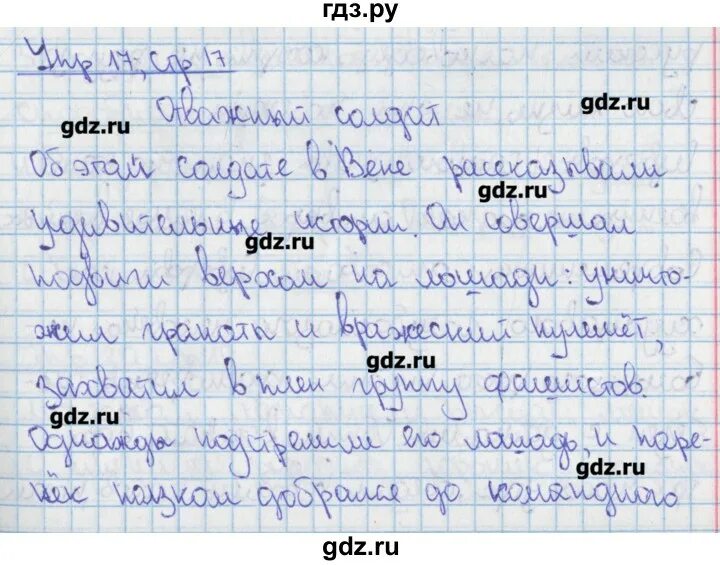 гдз.ру
Упр 17, стр 17
gdz.ru
Отважный солдат
gdz.ru
Об этом солдате в Вене рассказывали
gdz.ru
удивительные истории. Он совершал
gdz.ru
подвиги верхом на лошади: уничто-
жил гранаты и вражеский пулемёт,
gdz.ru
захватил в плен группу фашистов.
gdz.ru
Однажды подстрелили его лошадь, и паре-
gdz.ru
нёк ползком добрался до командного
gdz.ru